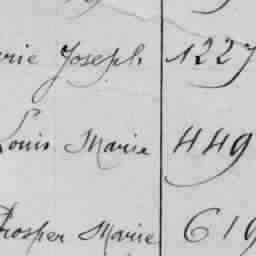 rie Joseph 1227
Louis Marie 449
Prosper Marie 619